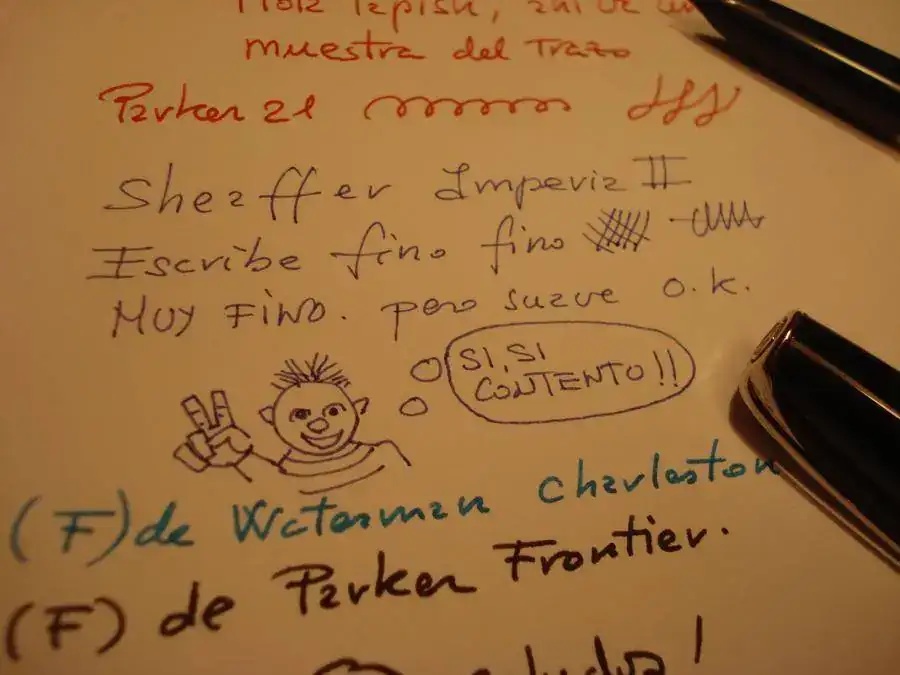 muestra del Trazo
Parker 21
Sheaffer Imperial II
Escribe fino fino
MUY FINO. pero suave o.k.
SI, SI
CONTENTO!!
(F) de Waterman Charleston
(F) de Parker Frontier.